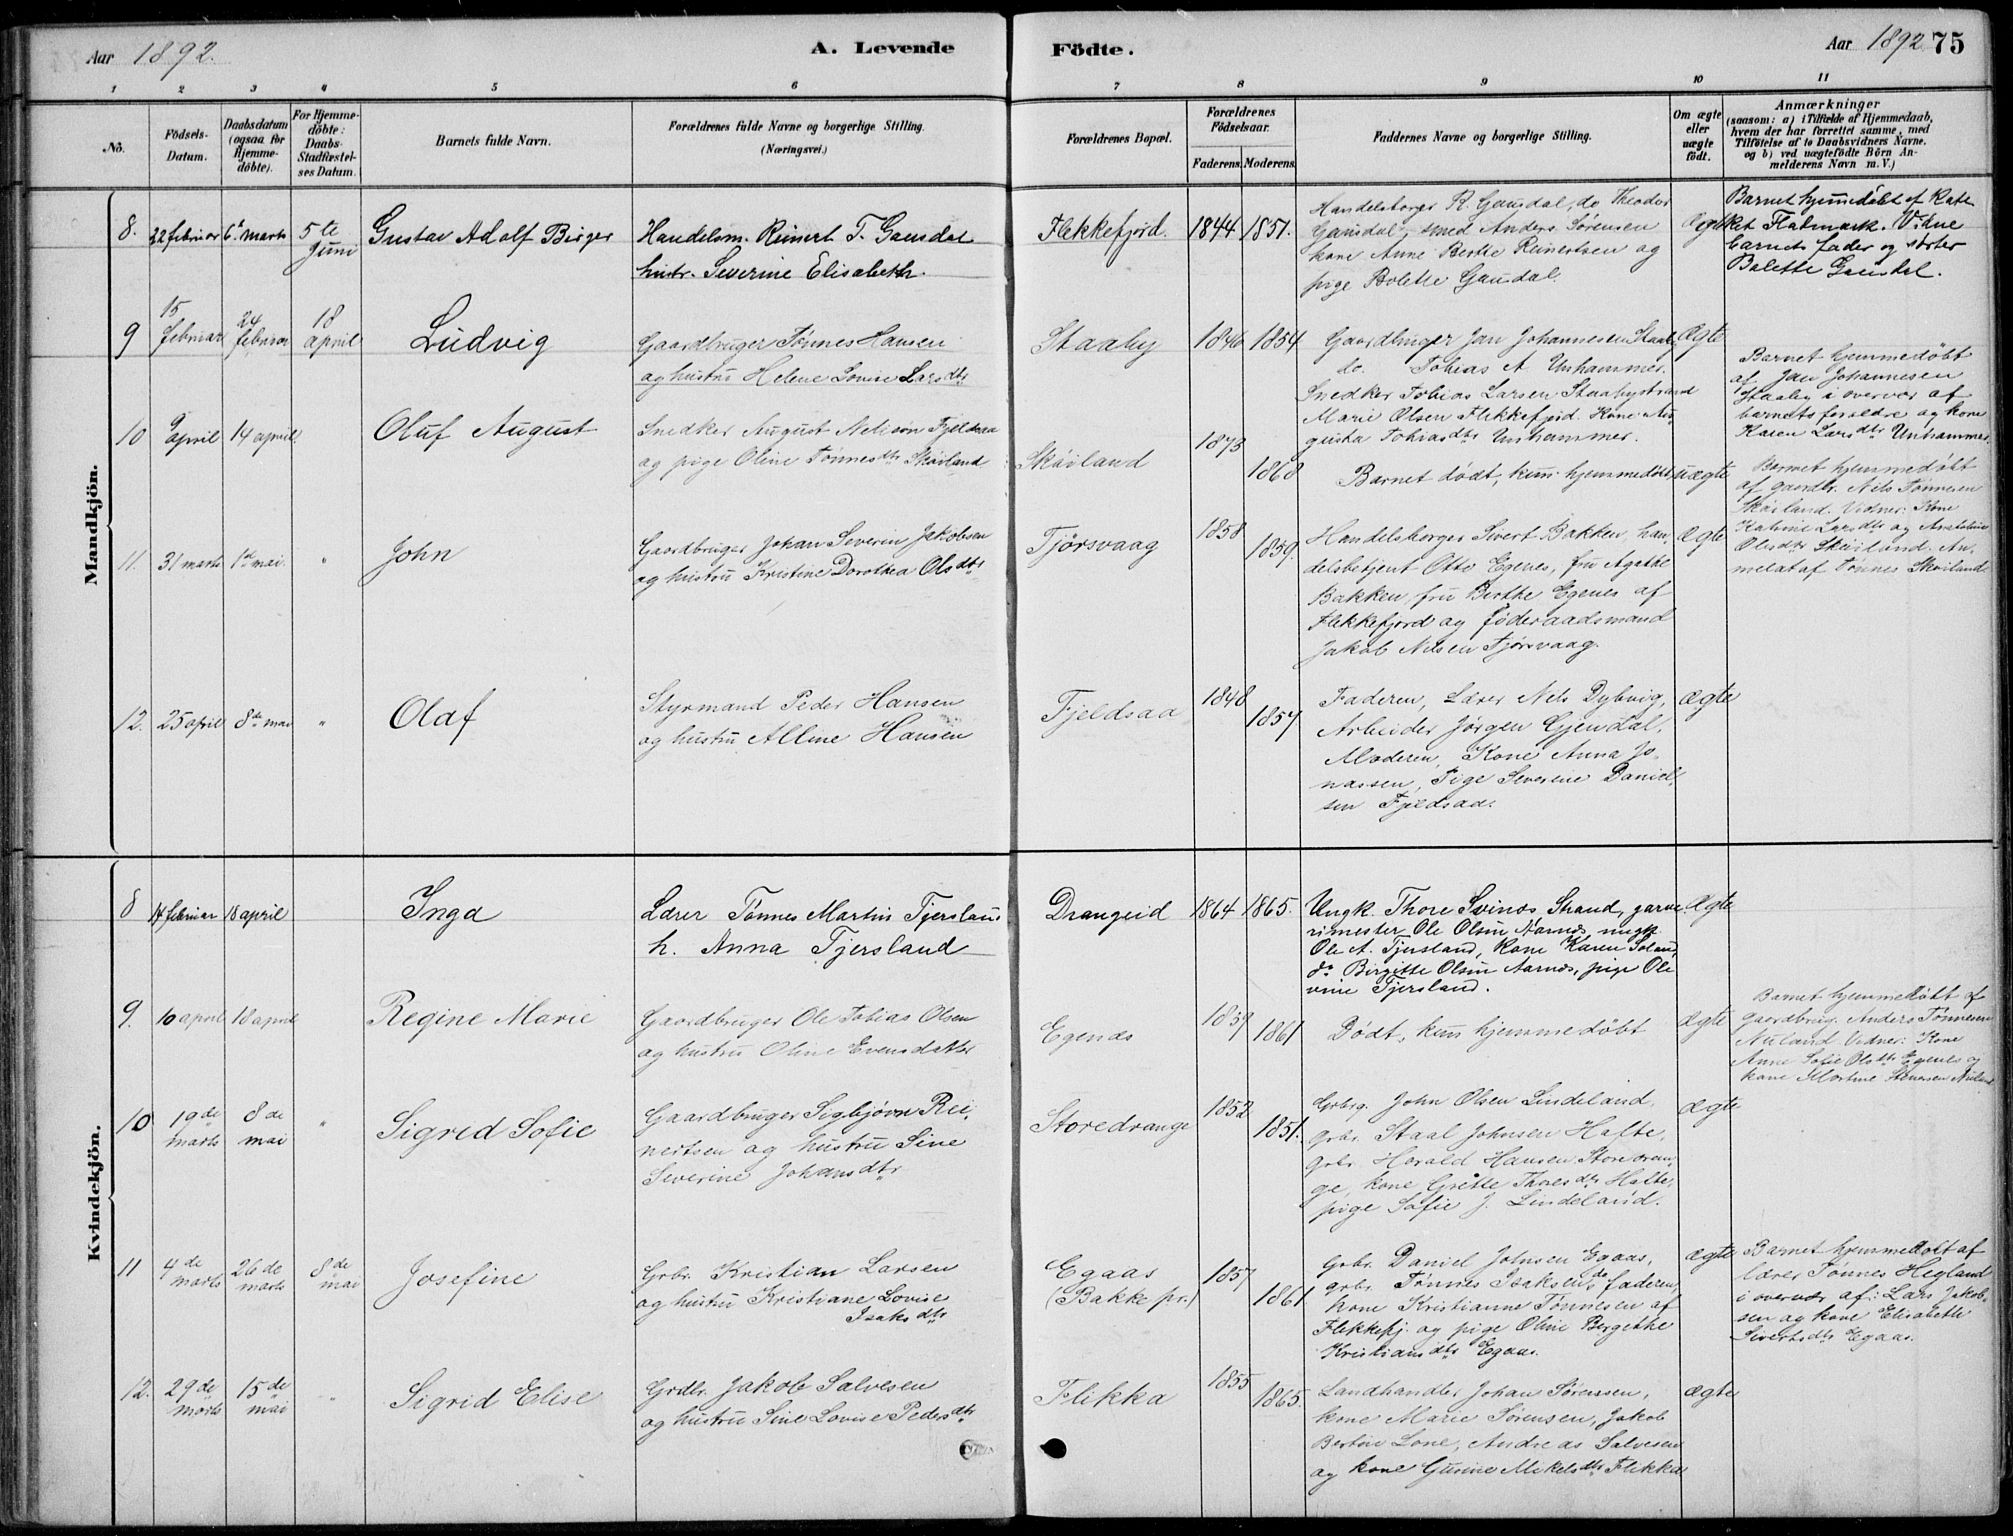 Aar 1892.
A. Levende Födte.
Aar 1892 75
1 2 3 4 5 6 7 8 9 10 11
No.
Födsels-Datum.
Daabsdatum (ogsaa for Hjemme-döbte).
For Hjemme-döbte: Daabs-Stadfæstel-ses Datum.
Barnets fulde Navn.
Forældrenes fulde Navne og borgerlige Stilling.
(Næringsvei.)
Forældrenes Bopæl.
Forældrenes Födselsaar.
Faderens. Moderens.
Faddernes Navne og borgerlige Stilling.
Om ægte eller uægte födt.
Anmærkninger
(saasom: a) i Tilfælde af Hjemmedaab,
hvem der har forrettet samme, med
Tilföielse af to Daabsvidners Navne.
og b) ved uægtefödte Börn An-
melderens Navn m. V.)
Mandkjön.
8. 22 februar 6te marts 5te Juni
Gustav Adolf Birger
Handelsm. Reinert T. Gausdal
hustr. Severine Elisabeth.
Flekkefjord 1844 1851.
Handelsborger R. Gausdal, do Theodor
Gausdal, smed Anders Sørensen
kone Anne Berthe Reinertsen og
pige Bolette Gausdal.
Ægte
Barnet hjemmedøbt af Kate
ket Flatmark. Vidne
barnets fader og søster
Bolette Gausdal.
9 15 februar 24 februar 18 april
Ludvig
Gaardbruger Tønnes Hansen
og hustru Helene Lovise Larsdtr
Staaby 1846 1854
Gaardbruger Jan Johannesen Staab.
do. Tobias A Unhammer.
Snedker Tobias Larsen Staabystrand
Marie Olsen Flekkefjord. Kone Au-
gusta Tobiasdtr Unhammer.
Ægte
Barnet hjemmedøbt
af Jan Johannesen
Staaby i overvær af
barnets forældre og kone
Karen Larsdtr Unhammer.
10 9 april 14 april
Oluf August
Snedker August Nelisøn Fjeldsaa
og pige Oline Tønnesdtr Skøiland
Skøiland 1873 1868
Barnet dødt, kun hjemmedøbt,
uægte
Barnet hjemmedøbt
af gaardbr. Nils Tønnesen
Skøiland. Vidner: Kone
Katrine Larsdtr og
Olsdtr Skøiland. An-
meldt af Tønnes Skøiland.
11. 31 marts 1ste mai. "
John
Gaardbruger Johan Severin Jakobsen
og hustru Kristine Dorothea Olsdtr
Tjørsvaag 1858 1859.
Handelsborger Sivert Bakken, han-
delsbetjent Otto Egenes, fru Agathe
Bakken, fru Berthe Egenes af
Flekkefjord og føderaadsmand
Jakob Nilsen Tjørsvaag.
Ægte
12. 25 april 8de mai "
Olaf
Styrmand Peder Hansen
og hustru Alline Hansen
Fjeldsaa 1848 1857
Faderen, Lærer Nels Dybvig,
Arbeider Jørgen Gjendal,
Moderen, Kone Anna Jo-
nassen, Pige Severine Daniel-
sen Fjeldsaa.
Ægte
Kvindekjön.
8 14 februar 18 april
Inga
Lærer Tønnes Martin Tjersland
h. Anna Tjersland
Drangeid 1864 1865.
Ungk. Thore Svinøs Strand, garve
rimester Ole Olsen Aarnæs, ungk
Ole A. Tjersland, kone Karen Soland
do Birgitte Olsen Aarnæs, pige Ole
vine Tjersland.
Ægte
9. 10 april 18 april
Regine Marie
Gaardbruger Ole Tobias Olsen
og hustru Oline Evensdatter
Egenæs 1859 1861
Dødt, kun hjemmedøbt
Ægte
Barnet hjemmedøbt af
gaardbrug. Anders Tønnesen
Nuland. Vidner: Kone
Anne Sofie Olsdtr Egenes og
kone Martine Nuland
10 19de marts 8de mai "
Sigrid Sofie
Gaardbruger Sigbjørn Rei-
nertsen og hustru Sine
Severine Johansdtr
Storedrange 1852 1851.
Grbrg. John Olsen Lindeland,
grbr. Staal Johnsen Halte,
grbr. Harald Hansen Storedran-
ge, kone Grethe Thoresdtr Halte,
pige Sofie J. Lindeland.
Ægte
11 4de marts 26de marts 8de mai
Josefine
Grbr. Kristian Larsen
og hustru Kristiane Lovise
Isaksdtr
Egaas
(Bakke pr.) 1857 1861
Grbr. Daniel Johnsen Egaas,
grbr. Tønnes Isaksen do, faderen,
kone Kristianne Tønnesen af
Flekkefj. og pige Oline Bergethe
Kristiansdtr Egaas.
Ægte
Barnet hjemmedøbt af
lærer Tønnes Hegland
i overvær af: Lars Jakob-
sen og kone Elisabeth
Sivertsdtr Egaas.
12. 29de marts 15de mai "
Sigrid Elise
Grdbr. Jakob Salvesen
og hustru Sine Lovise Pedersdtr
Flikka 1855 1865.
Landhandler Johan Sørensen,
kone Marie Sørensen, Jakob
Lone, Andreas Salvesen
og kone Gusine Mikelsdtr Flikka
Ægte